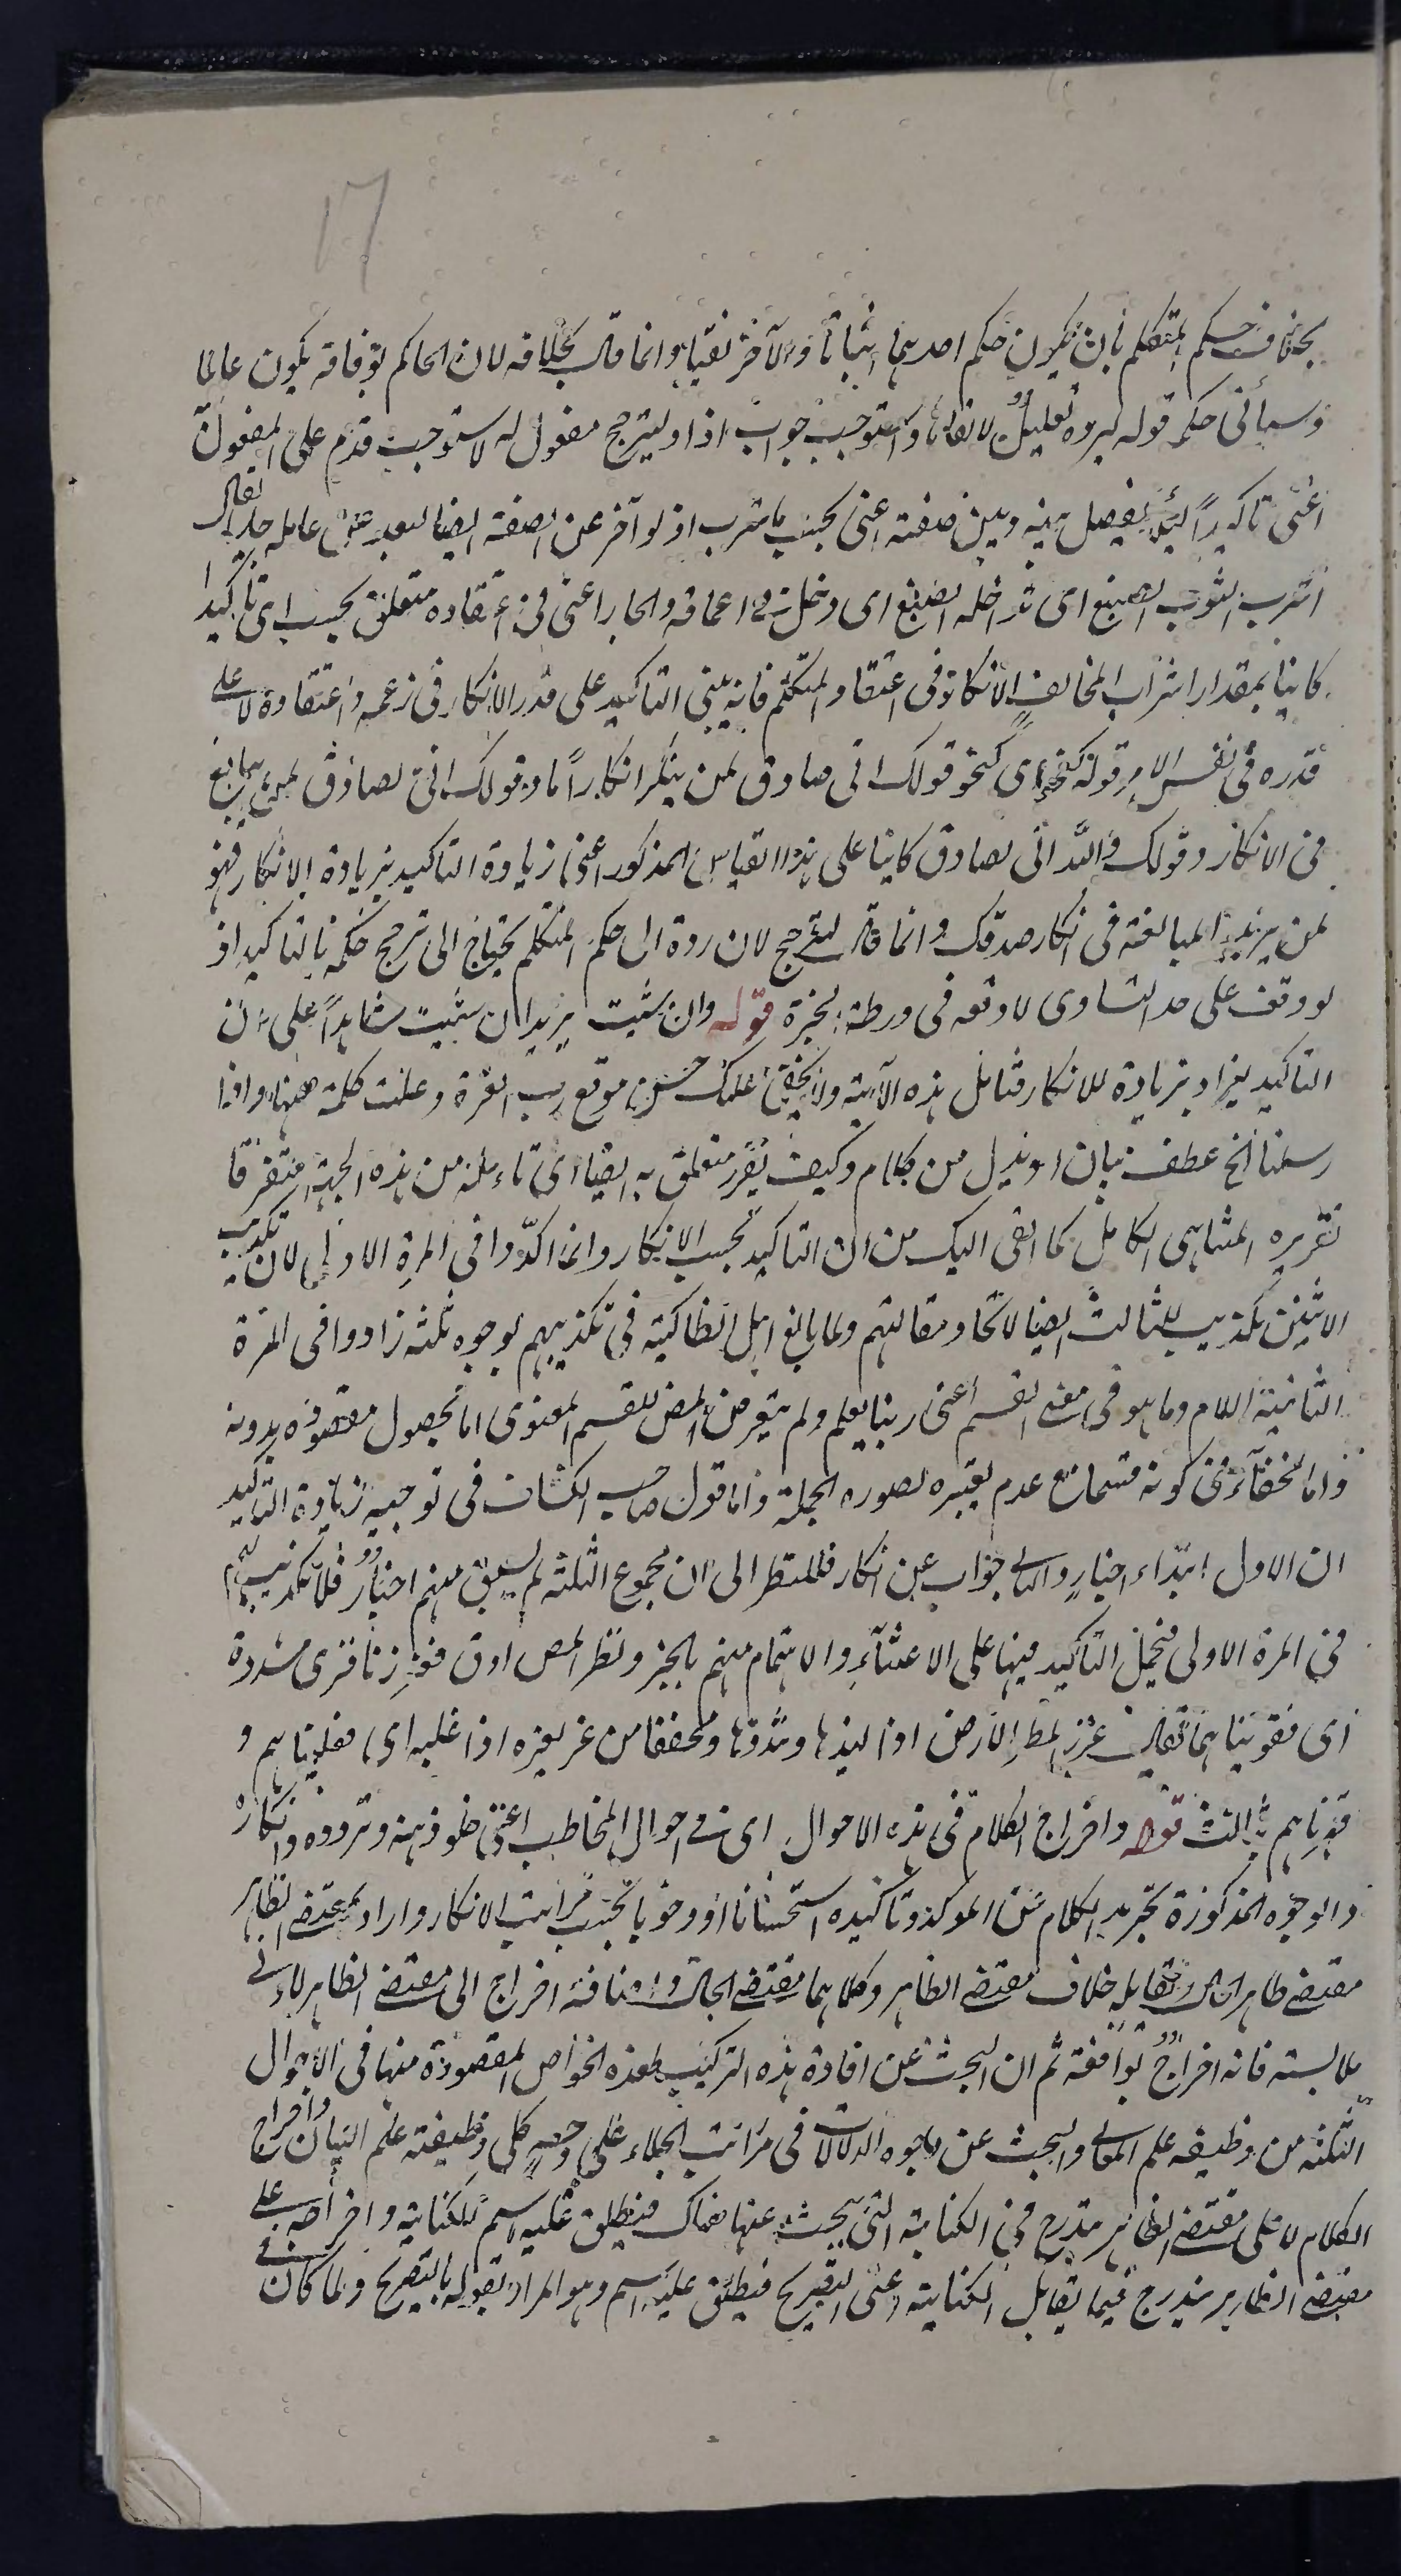 ١٧
بخلاف حكم المتكلم بان يكون حكم احدهما اثباتا والآخر نفيا وانما قال بخلافه لان الحاكم بوفاقه يكون عالما
وسيأتي حكمه قوله ليرده تعليل لالقائها واستوجب جواب اذا وليترجح مفعول له لاستوجب قدم على المفعول
اعنى تاكيدا لئلا يفصل بينه وبين صفته اعنى بحسب ما اشرب اذ لو آخر عن الصفة ايضا لبعد عن عامله جدا يقال
اشرب الثوب الصبغ اى تداخله الصبغ اى دخل في اعماقه والجار اعنى في اعتقاده متعلق بحسب اى تاكيدا
كاينا بمقدار اشراب المخالف الانكار في اعتقاد المتكلم فانه يبنى التاكيد على قدر الانكار في زعمه واعتقاده لا على
قدره في نفس الامر قوله كنحو اى كنحو قولك انى صادق لمن ينكر انكارا ما وقولك انى لصادق لمن يبالغ
في الانكار وقولك والله انى لصادق كاينا على هذا القياس المذكور اعنى زيادة التاكيد بزيادة الانكار فهو
لمن يريد المبالغة في انكار صدقك وانما قال ليترجح لان رده الى حكم المتكلم يحتاج الى ترجح حكمه بالتاكيد اذ
لو وقف على حد التساوى لاوقعه في ورطة الحيرة قوله وان شئت يريد ان شئت شاهدا على ان
التاكيد يزاد بزيادة للانكار فتامل هذه الآية ولا يخفى عليك حسن موقع رب العزة وعلت كلمته ههنا واذا
رسلنا الخ عطف بيان او بدل من كلام وكيف يقرر متعلق به ايضا اى تامله من هذه الجهة متفرقا
تقريره المتناهى الكامل كما القى اليك من ان التاكيد بحسب الانكار وانما اكدوا في المرة الاولى لان تكذيب
الاثنين تكذيب للثالث ايضا لاتحاد مقالتهم ولما بالغ اهل انطاكية في تكذيبهم بوجوه ثلثة زادوا في المرة
الثانية اللام وما هو في معنى القسم اعنى ربنا يعلم ولم يتعرض المص للقسم المعنوى اما لحصول مقصوده بدونه
واما لخفاء في كونه قسما مع عدم تغييره لصورة الجملة واما قول صاحب الكشاف في توجيه زيادة التاكيد
ان الاول ابتداء اخبار والثانى جواب عن انكار فللنظر الى ان مجموع الثلثة لم يسبق منهم اخبار فلا تكذيب لهم
في المرة الاولى فيحمل التاكيد فيها على الاعتناء والاهتمام منهم بالخبر ونظر المص ادق فعززنا قرى مشددة
اى فقويناهما يقال عزز المطر الارض اذا لبدها وشدها ومخففا من عز يعزه اذا غلبه اى فغلبناهم و
قهرناهم بثالث قوله واخراج الكلام في هذه الاحوال اى في احوال المخاطب اعنى خلو ذهنه وتردده وانكاره
والوجوه المذكورة تجريد الكلام عن المؤكد وتاكيده استحسانا او وجوبا بحسب مراتب الانكار واراد بمقتضى الظاهر
مقتضى ظاهر الحال ويقابله خلاف مقتضى الظاهر وكلاهما مقتضى الحال واضافة اخراج الى مقتضى الظاهر لادنى
ملابسة فانه اخراج يوافقه ثم ان البحث عن افادة هذه التركيب لهذه الخواص المقصودة منها في الاحوال
الثلثة من وظيفة علم المعانى والبحث عن وجوه الدلالات في مراتب الجلاء على وجه كلى وظيفته علم البيان واخراج
الكلام لا على مقتضى الظاهر يندرج في الكناية التى يبحث عنها هناك فينطلق عليه اسم الكناية واخراجه على
مقتضى الظاهر يندرج فيما يقابل الكناية اعنى التصريح فيطلق عليه اسمه وهو المراد بقوله بالتصريح ولما كان في